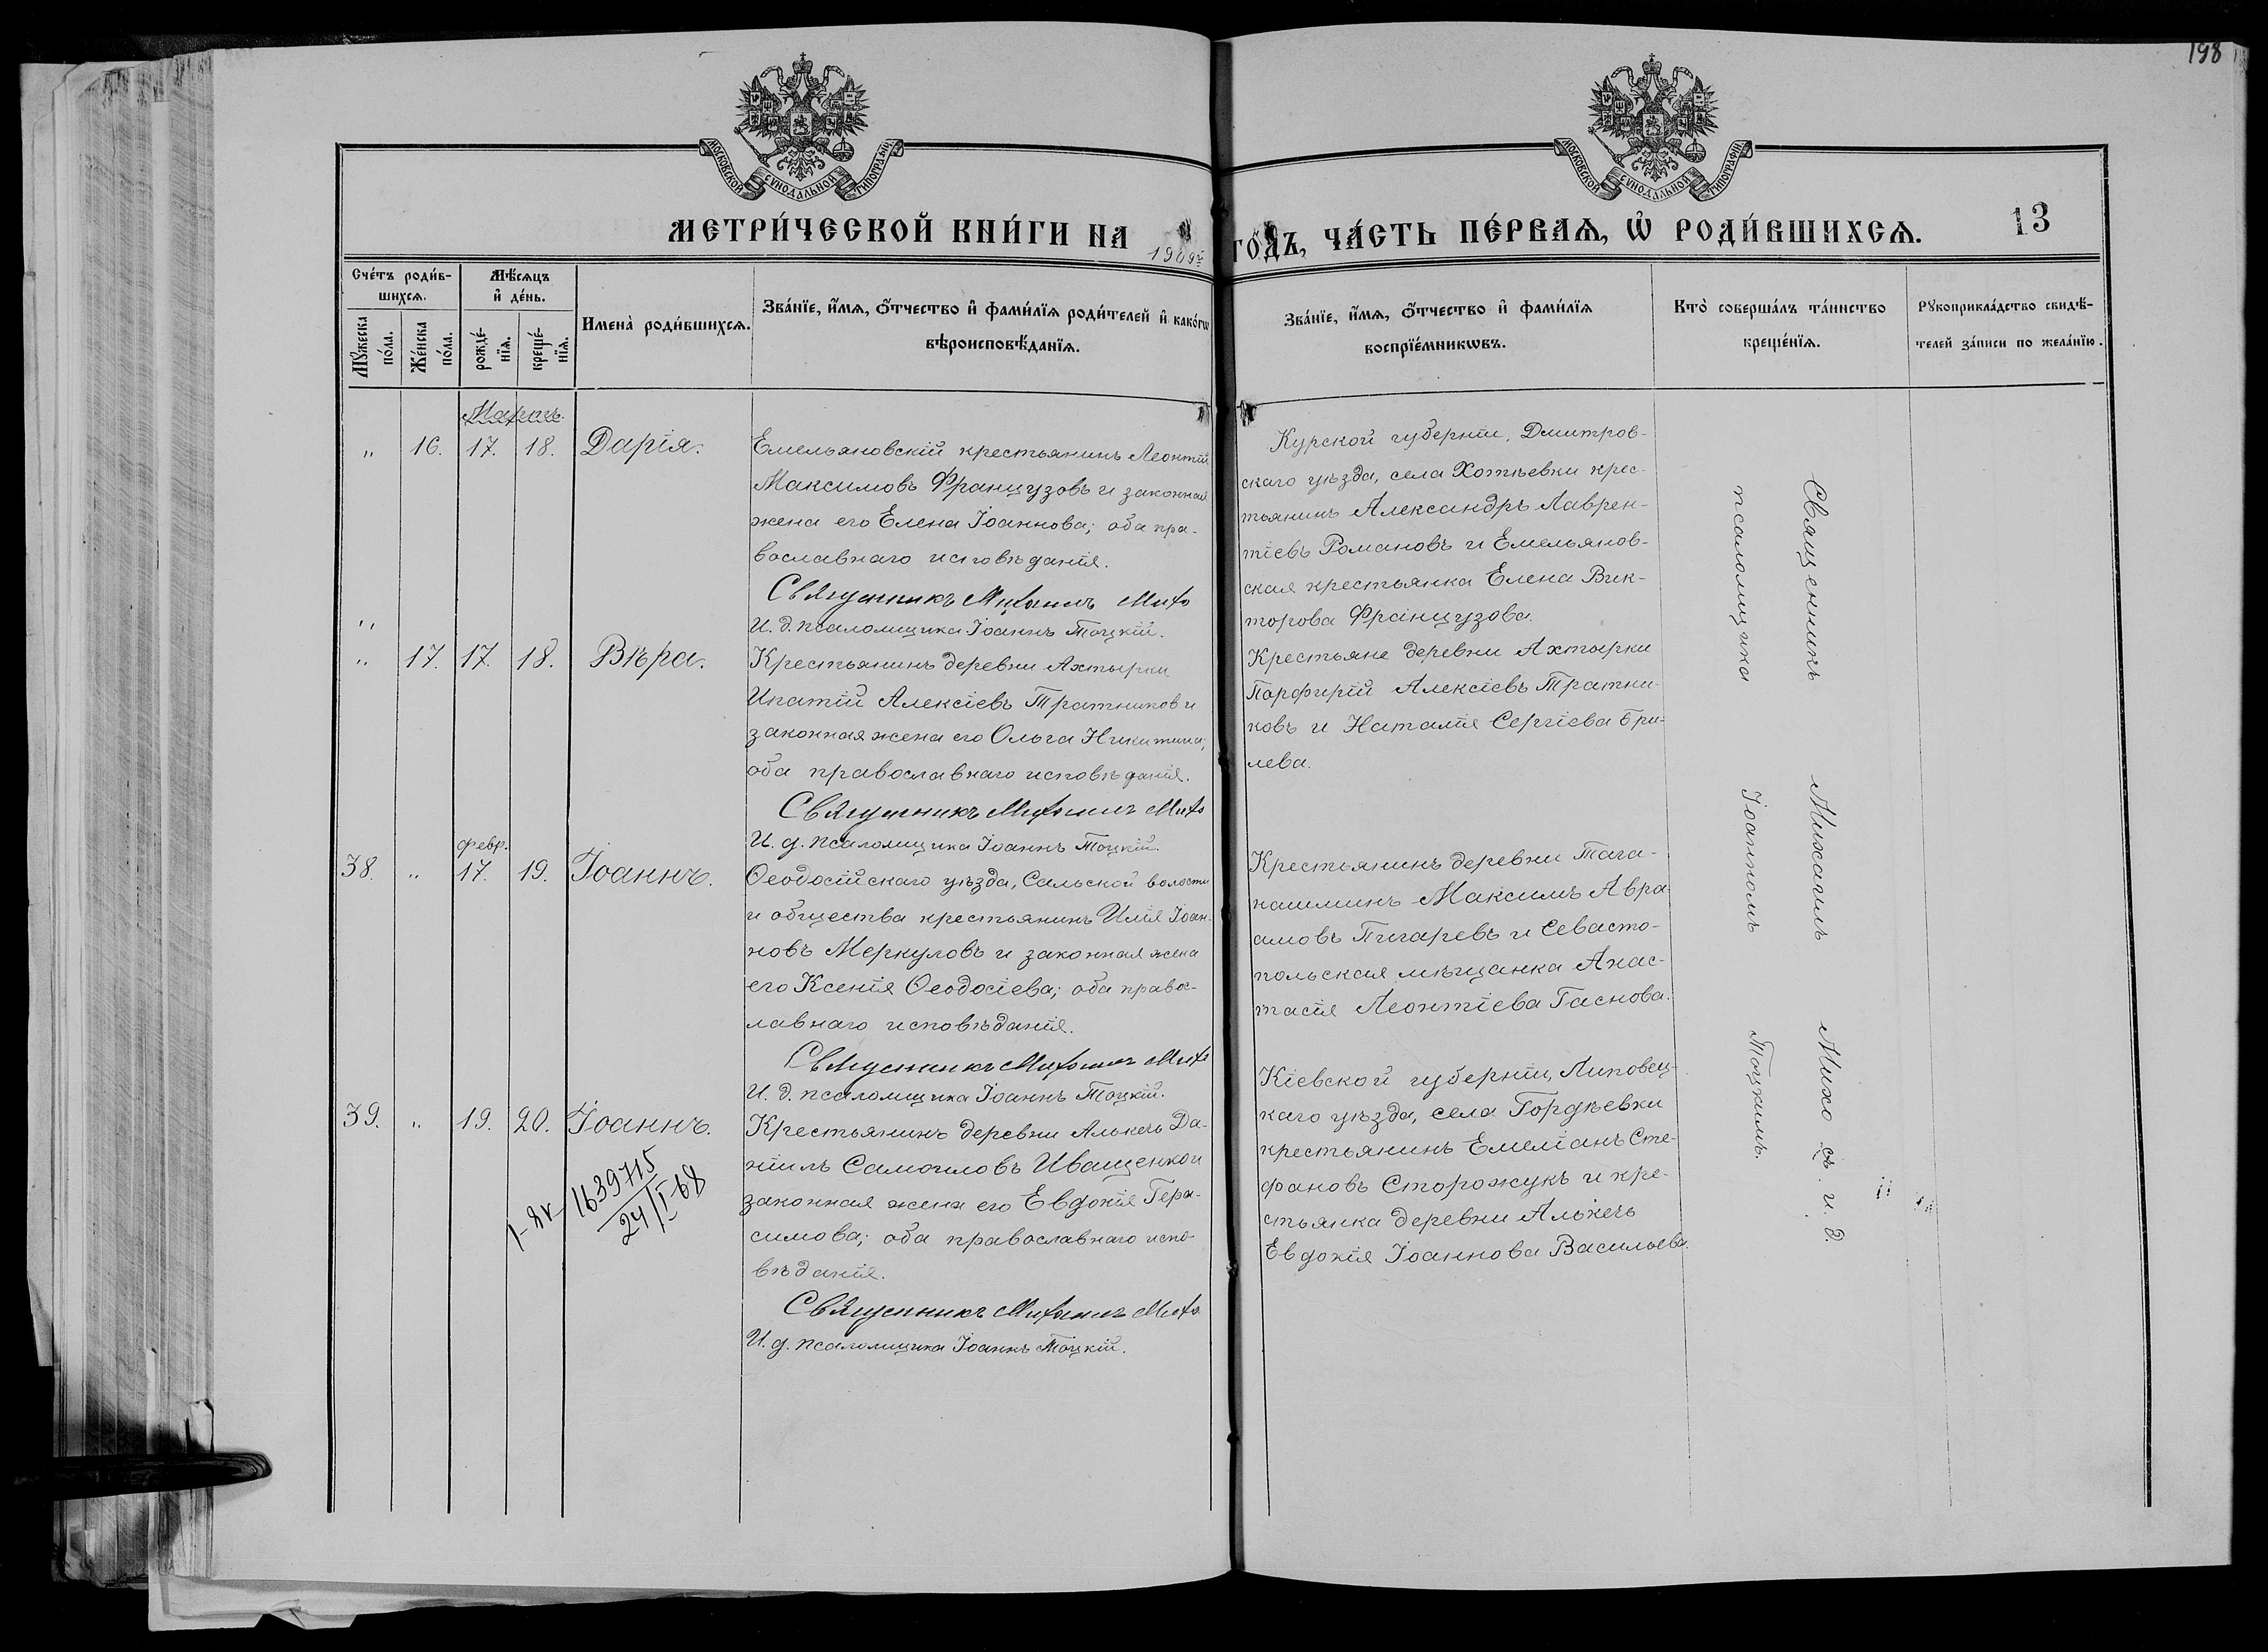 198
МОСКОВСКОЙ СѴНОДАЛЬНОЙ ТИПОГРАФІИ
МОСКОВСКОЙ СѴНОДАЛЬНОЙ ТИПОГРАФІИ
МЕТРИ́ЧЕСКОЙ КНИ́ГИ НА 1909й ГО́ДЪ, ЧА́СТЬ ПЕ́РВАѦ, Ѡ҆ РОДИ́ВШИХСѦ.
13
Сче́тъ роди́в-
шихсѧ.
Мꙋ́жеска
по́ла.
Же́нска
по́ла.
Мѣ́сѧцъ
и҆ де́нь.
рожде́-
нїѧ.
креще́-
нїѧ.
Имена̀ роди́вшихсѧ.
Зва́нїе, и҆́мѧ, ѻ҆́тчество и҆ фами́лїѧ роди́телей и҆ како́гѡ
вѣроисповѣ́данїѧ.
Зва́нїе, и҆́мѧ, ѻ҆́тчество и҆ фами́лїѧ
воспрїе́мникѡвъ.
Кто̀ соверша́лъ та́инство
креще́нїѧ.
Рꙋкоприкла́дство свидѣ́-
телей за́писи по жела́нїю.
Мартъ.
„ 16. 17. 18. Дарія.
Емельяновскій крестьянинъ Леонтій
Максимовъ Французовъ и законная
жена его Елена Іоаннова; оба пра-
вославнаго исповѣданія.
Священникъ Михаилъ Михо
И. д. псаломщика Іоаннъ Тоцкій.
Курской губерніи, Дмитров-
скаго уѣзда, села Хотѣевки крес-
тьянинъ Александръ Лаврен-
тіевъ Романовъ и Емельянов-
ская крестьянка Елена Вик-
торова Французова.
„
„ 17. 17. 18. Вѣра.
Крестьянинъ деревни Ахтырки
Ипатій Алексіевъ Тратников и
законная жена его Ольга Никитина;
оба православнаго исповѣданія.
Священникъ Михаилъ Михо
И. д. псаломщика Іоаннъ Тоцкій.
Крестьяне деревни Ахтырки
Порфирій Алексіевъ Тратни-
ковъ и Наталія Сергіева Бри-
лева.
февр.
38. „ 17. 19. Іоаннъ.
Ѳеодосійскаго уѣзда, Сальской волости
и общества крестьянинъ Илія Іоан-
новъ Меркуловъ и законная жена
его Ксенія Ѳеодосіева; оба правос-
лавнаго исповѣданія.
Священникъ Михаилъ Михо
И. д. псаломщика Іоаннъ Тоцкій.
Крестьянинъ деревни Тага-
нашминъ Максимъ Авра-
амовъ Пигаревъ и Севасто-
польская мѣщанка Анас-
тасія Леонтіева Гаснова.
39. „ 19. 20. Іоаннъ.
1639715
24/I-68
Крестьянинъ деревни Алькечь Да-
ніилъ Самоиловъ Иващенко и
законная жена его Евдокія Гера-
симова; оба православнаго испо-
вѣданія.
Священникъ Михаилъ Михо
И. д. псаломщика Іоаннъ Тоцкій.
Кіевской губерніи, Липовец-
каго уѣзда, села Гордѣевки
крестьянинъ Емеліанъ Сте-
фановъ Сторожукъ и кре-
стьянка деревни Алькечь
Евдокія Іоаннова Васильева.
Священникъ Михаилъ Михо съ и. д.
псаломщика Іоанномъ Тоцкимъ.